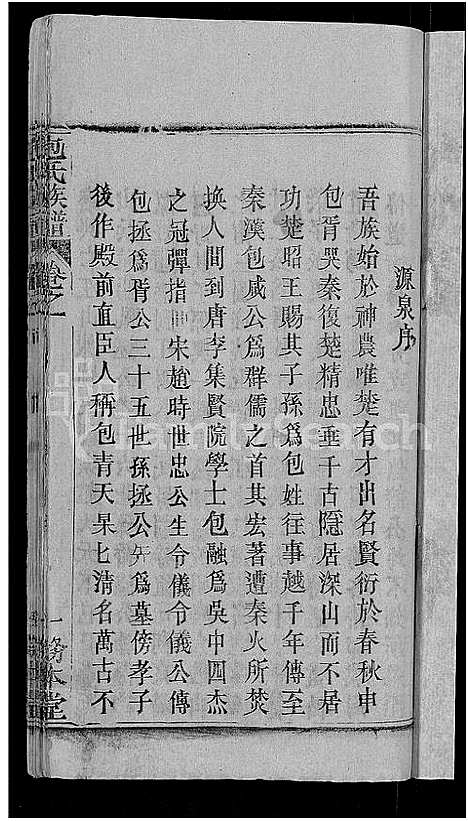 源泉序
吾族始於神農唯楚有才出名賢衍於春秋申
包胥哭秦復楚精忠垂千古隱居深山而不居
功楚昭王賜其子孫爲包姓往事越千年傳至
秦漢包咸公爲群儒之首其宏著遭秦火所焚
换人間到唐李集賢院學士包融爲吳中四杰
之冠彈指 宋趙時世忠公生令儀令儀公傳
包拯爲胥公三十五世孫拯公 爲墓傍孝子
後作殿前直臣人稱包青天杲匕清名萬古不
包氏族譜
卷之一
務本堂
FamilySearch